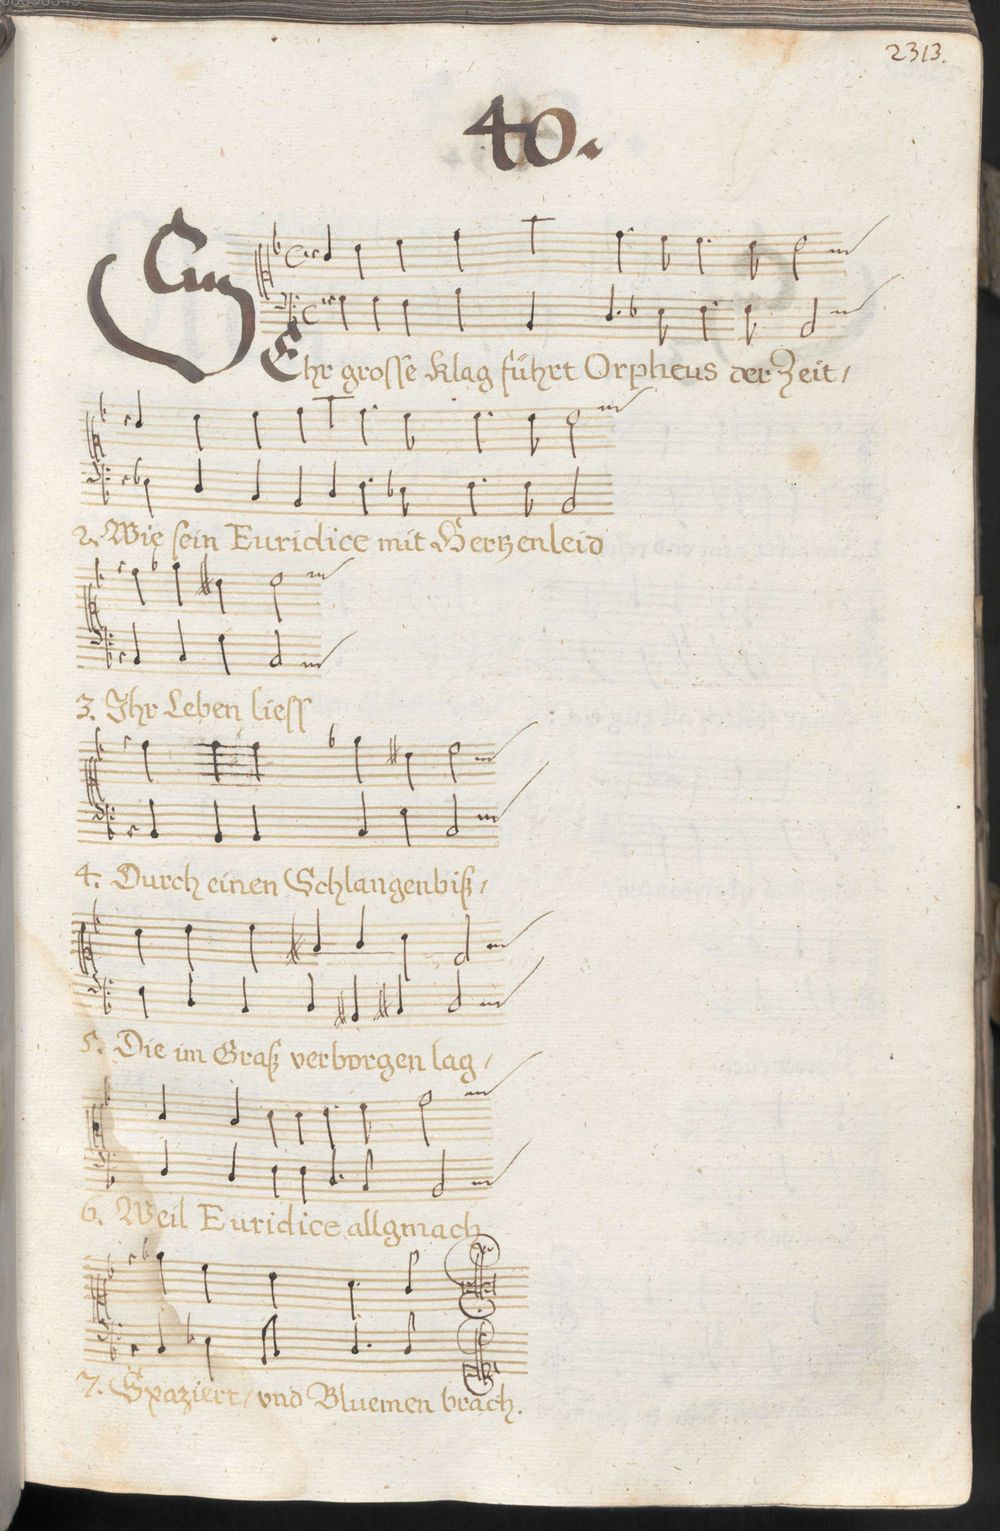 2313.
40.
Ehr grosse Klag führt Orpheus der Zeit /
2. Wie sein Euridice mit Hertzenleid
3. Ihr Leben liess
4. Durch einen Schlangenbiß /
5. Die im Graß verborgen lag /
6. Weil Euridice allgmach
7. Spaziert / vnd Bluemen brach.